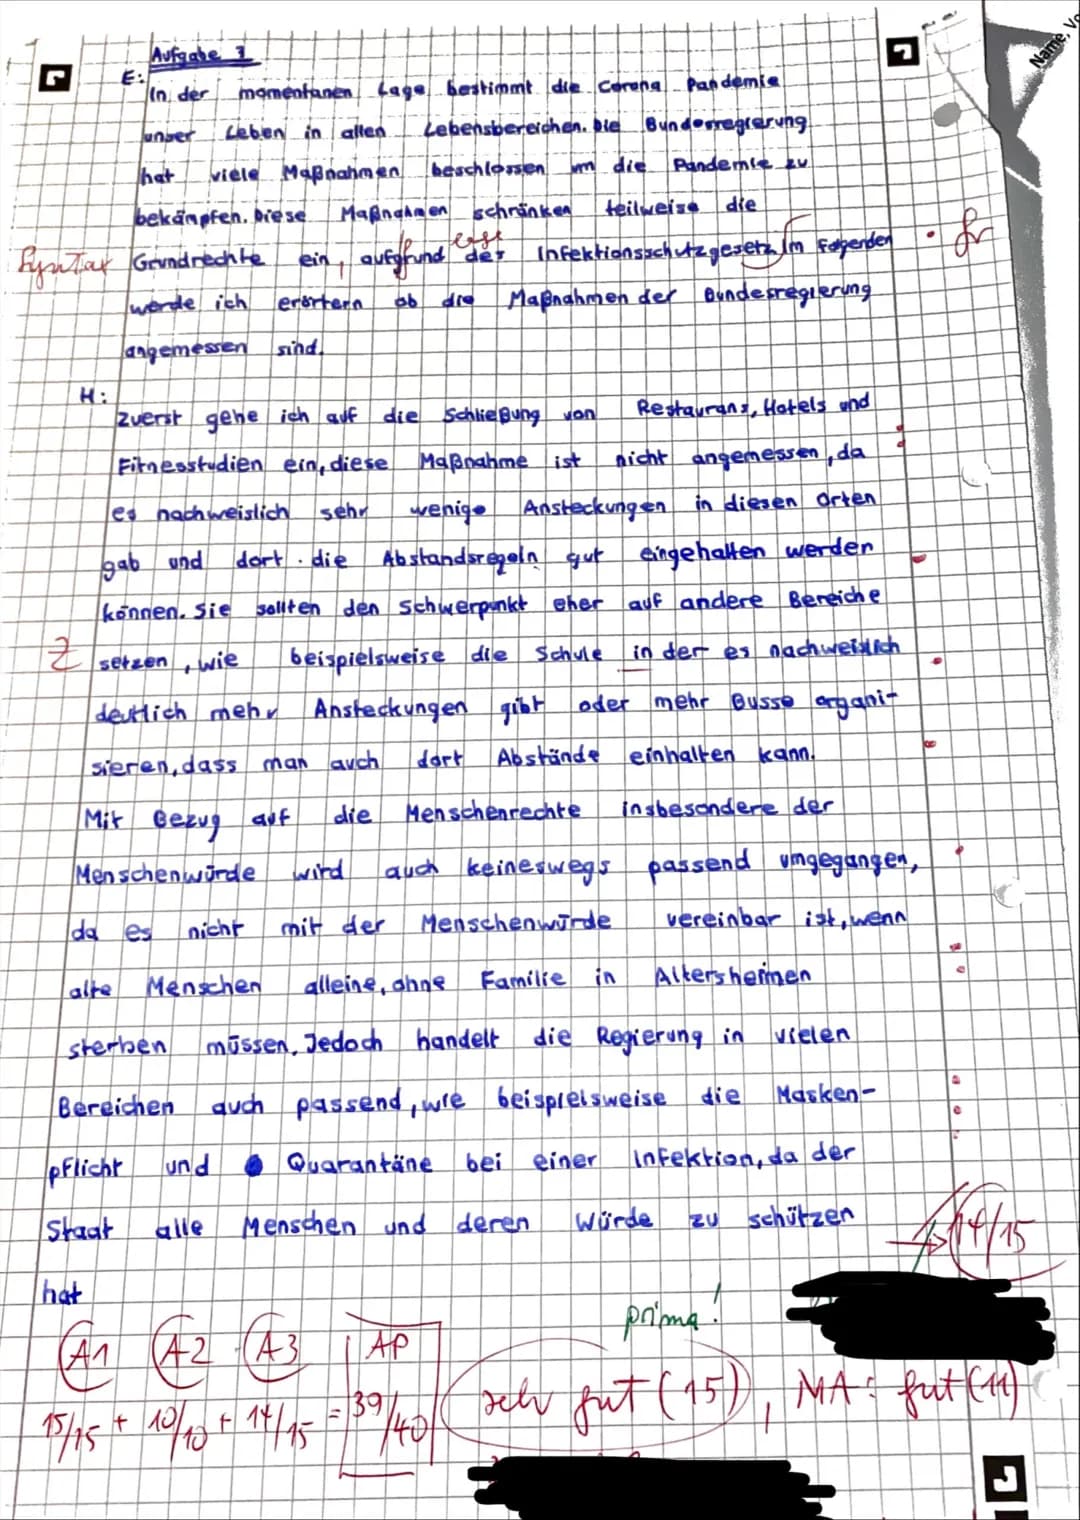 Name, Vo
Aufgabe 3
E:
In der momentanen Lage bestimmt die Corona Pandemie
unser Leben in allen Lebensbereichen. Die Bundesregierung
hat viele Maßnahmen beschlossen um die Pandemie zu
bekämpfen. Diese Maßnahmen schränken teilweise die
Syntax Grundrechte ein, aufgrund des Infektionsschutzgesetz Im Folgenden
werde ich erörtern ob die Maßnahmen der Bundesregierung
angemessen sind.
H:
Zuerst gehe ich auf die Schließung von Restaurans, Hotels und
Fitnesstudien ein, diese Maßnahme ist nicht angemessen, da
es nachweislich sehr wenige Ansteckungen in diesen Orten
gab und dort die Abstandsregeln gut eingehalten werden
können. Sie sollten den Schwerpunkt eher auf andere Bereiche
Z setzen, wie beispielsweise die Schule in der es nachweislich
deutlich mehr Ansteckungen gibt oder mehr Busse organi-
sieren, dass man auch dort Abstände einhalten kann.
Mit Bezug auf die Menschenrechte insbesondere der
Menschenwürde wird auch keineswegs passend umgegangen,
da es nicht mit der Menschenwürde vereinbar ist, wenn
alte Menschen alleine, ohne Familie in Altersheimen
sterben müssen. Jedoch handelt die Regierung in vielen
Bereichen auch passend, wie beispielsweise die Masken-
pflicht und Quarantäne bei einer Infektion, da der
Staat alle Menschen und deren Würde zu schützen
hat
14/15
prima!
A1 A2 A3 AP
15/15 + 10/10 + 14/15 = 39/40 sehr gut (15), MA: gut (11)